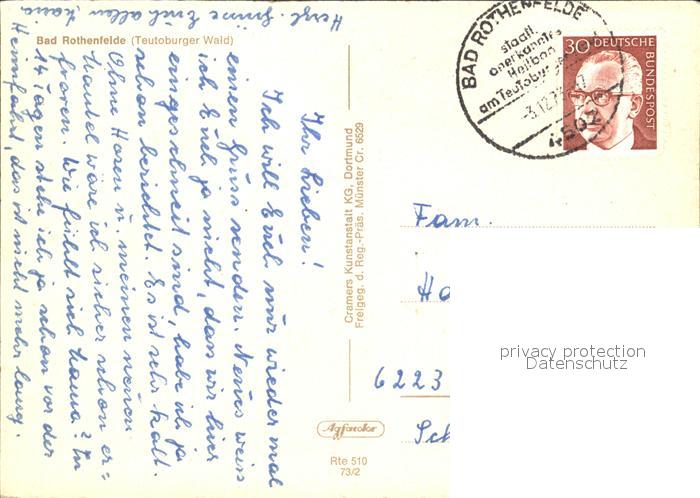 Bad Rothenfelde (Teutoburger Wald)
Ihr Lieben!
Ich will Euch nur wieder mal
einen Gruss senden. Neues weiss
ich Euch ja nicht, dass wir hier
eingeschneit sind, habe ich ja
schon berichtet. Es ist sehr kalt.
Ohne Hosen u. meinen neuen
Mantel wäre ich sicher schon er=
froren. Wie fühlt sich Mama? In
14 Tagen stehe ich ja schon vor der
Heimfahrt, das ist nicht mehr lang.
Herzl. Grüsse Euch allen
Cramers Kunstanstalt KG, Dortmund
Freigeg. d. Reg.-Präs. Münster Cr. 6529
Agfacolor
Rte 510
73/2
BAD ROTHENFELDE
staatl.
anerkanntes
Heilbad
am Teutoburger
-3.12.73
4502
30 DEUTSCHE
BUNDESPOST
Fam.
Ho
6223
Sch
privacy protection
Datenschutz